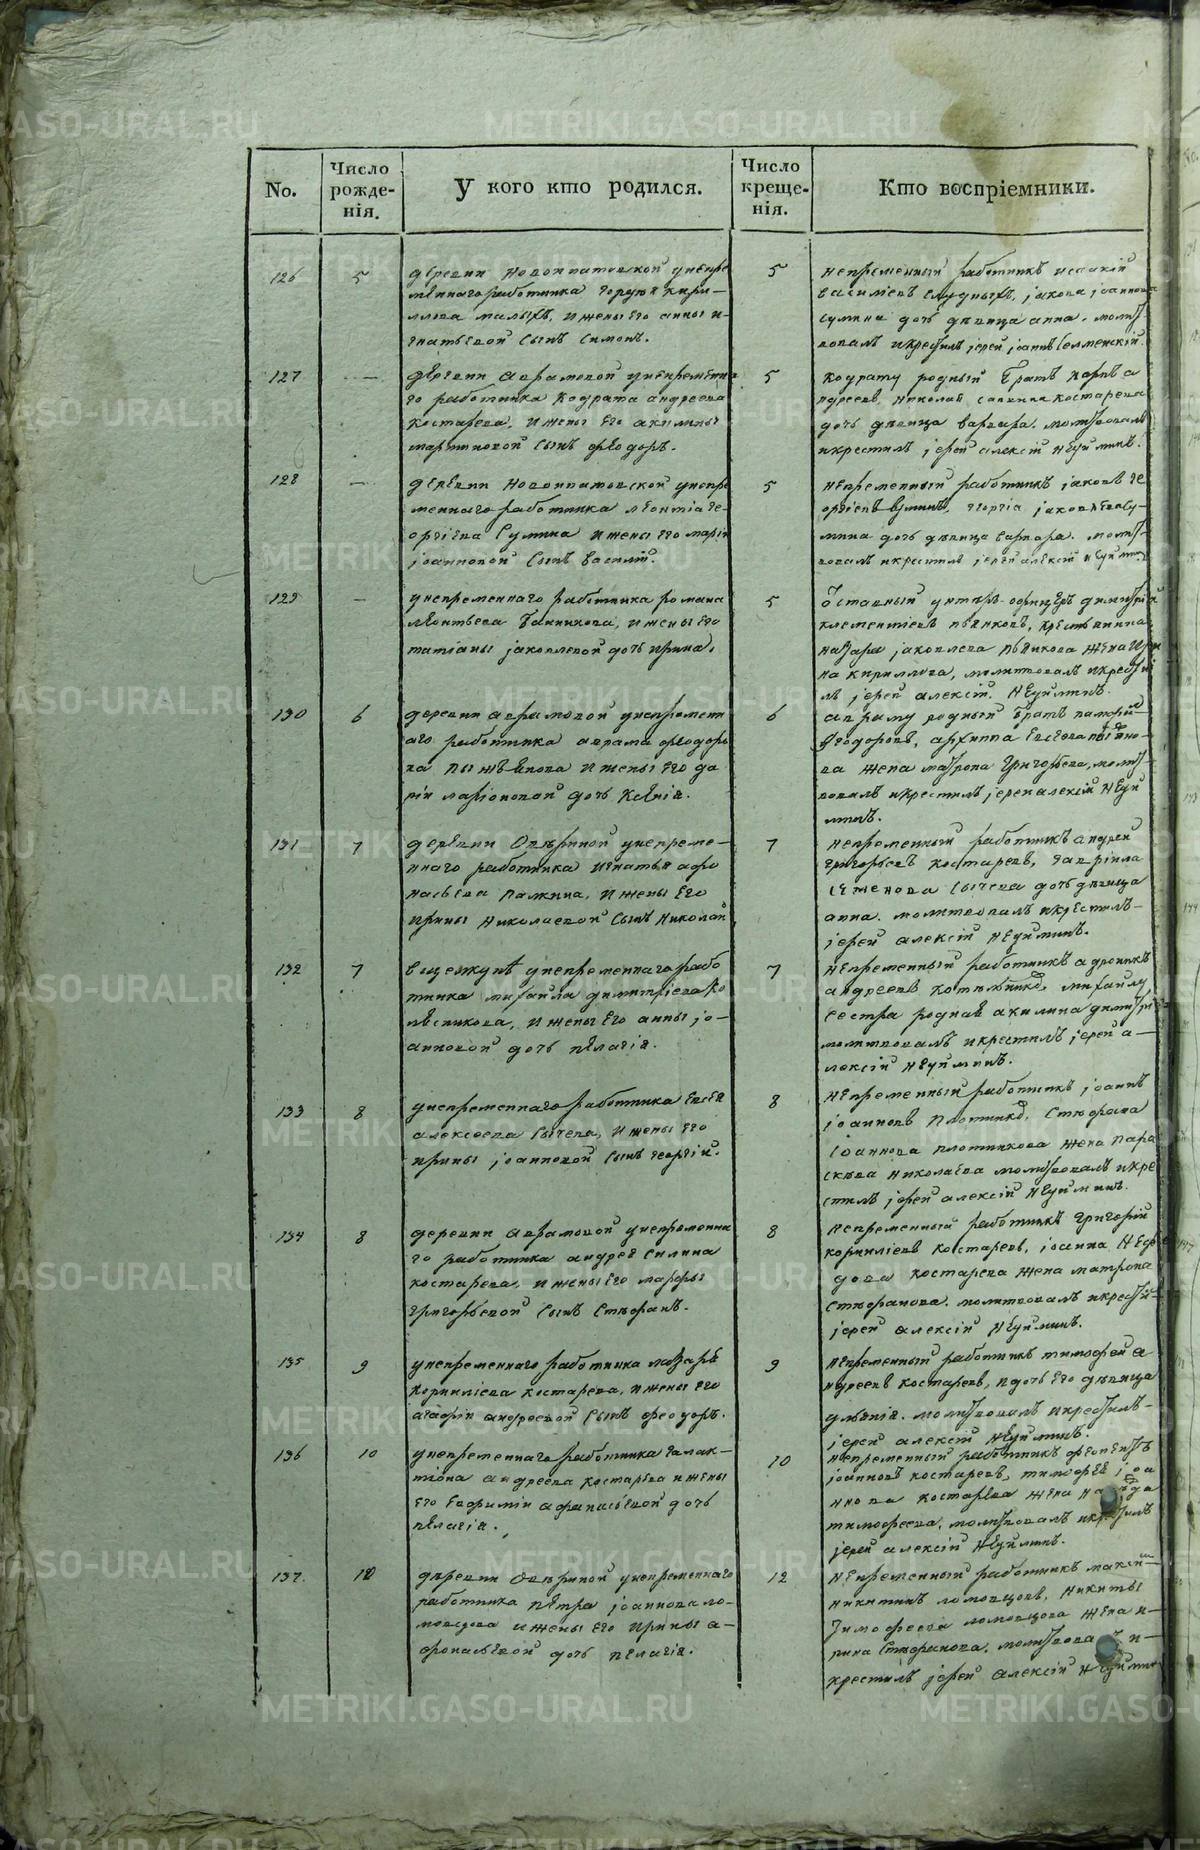 No.
Число рожде-нія.
У кого кто родился.
Число креще-нія.
Кто воспріемники.
126
5
деревни Новоипатовской унепре
мѣннаго работника
лова малыхъ, и жены его анны и-
гнатьевой сынъ Симонъ.
5
непременный работникъ исакій
василіевъ іакова іоаннова
сумина дочь дѣвица анна. молит
вовалъ и крестилъ іерей іоаннъ
127
—
деревни Аврамовой унепременна
го работника Кодрата андреева
Костарева, и жены его акилины
мартиновой сынъ ѳеодоръ.
5
Кодрату родный братъ карпъ а
ндреевъ, николай Костарева
дочь дѣвица варвара. молитвовалъ
и крестилъ іерей алексій Неуйминъ.
128
—
деревни Новоипатовской унепре
менного работника леонтія ге-
оргіева Сумина и жены его маріи
іоанновой сынъ василій.
5
Непременный работникъ іаковъ ге
оргіевъ георгія іаковлева су-
мина дочь дѣвица варвара. молит-
вовалъ и крестилъ іерей алексій Неуймин
129
—
унепременнаго работника романа
леонтьева Банникова, и жены его
татіаны іаковлевой дочь ирина.
5
Отставный унтеръ-офицеръ димитрій
клементіевъ пьянковъ, крестьянина
назара іаковлева пьянкова жена ири
на кирилова, молитвовалъ и крести
лъ іерей алексій. Неуйминъ.
130
6
деревни аврамовой унепременн
аго работника аврама ѳеодоро
ва пьянкова и жены его да
ріи ларіоновой дочь Ксенія.
6
авраму родный братъ
Ѳеодоровъ, архиппа
ва жена матрона Григорьева, молит-
вовалъ и крестилъ іерей алексій Неуй
минъ.
131
7
деревни Овѣриной унепреме-
ннаго работника игнатья афо
насьева Палкина, и жены его
ирины Николаевой сынъ Николай
7
непременный работникъ андрей
григорьевъ костаревъ, гавріила
семенова сычева дочь дѣвица
анна. молитвовалъ и крестилъ-
іерей алексій Неуйминъ.
132
7
унепременнаго рабо
тника михаила димитріева ко
лесникова, и жены его анны іо-
анновой дочь пелагія.
7
непременный работникъ андроникъ
андреевъ михайлу
сестра родная акилина димитріева
молитвовалъ и крестилъ іерей а-
лексій Неуйминъ.
133
8
унепременнаго работника Евсея
алексеева Сычева, и жены его
ирины іоанновой сынъ георгій.
8
непременный работникъ іоаннъ
іоанновъ Плотников, Стефана
іоаннова плотникова жена Пара
скева Николаева молитвовалъ и кре
стилъ іерей алексій Неуйминъ.
134
8
деревни аврамовой унепременна
го работника андрея силина
костарева, и жены его марфы
григорьевой сынъ Стефанъ.
8
непременный работникъ григорій
корниліевъ костаревъ, іоанна
дова костарева жена матрона
Стефанова. молитвовалъ и крестил
іерей алексій Неуйминъ.
135
9
унепременнаго работника назаръ
корниліева костарева, и жены его
агафіи андреевой сынъ ѳеодоръ.
9
непременный работникъ тимофей а
ндреевъ костаревъ, и дочь его дѣвица
уліянія. молитвовалъ и крестилъ-
іерей алексій Неуйминъ.
136
10
унепременнаго работника галак-
тіона андреева костарева и жены
его евфиміи афанасьевой дочь
пелагія.
10
непременный работникъ
іоанновъ костаревъ, тимофея іоа
ннова костарева жена
тимофеева, молитвовалъ и крестилъ
іерей алексій Неуйминъ.
137.
12
деревни Овѣриной унепременнаго
работника петра іоаннова ло-
мовцова и жены его ирины а-
фонасьевой дочь пелагія.
12
Непременный работникъ максим
никитинъ ломовцовъ, никиты
тимофеева ломовцова жена и-
рина Стефанова. молитвовалъ и-
крестилъ іерей алексій Неуймин
METRIKI.GASO-URAL.RU